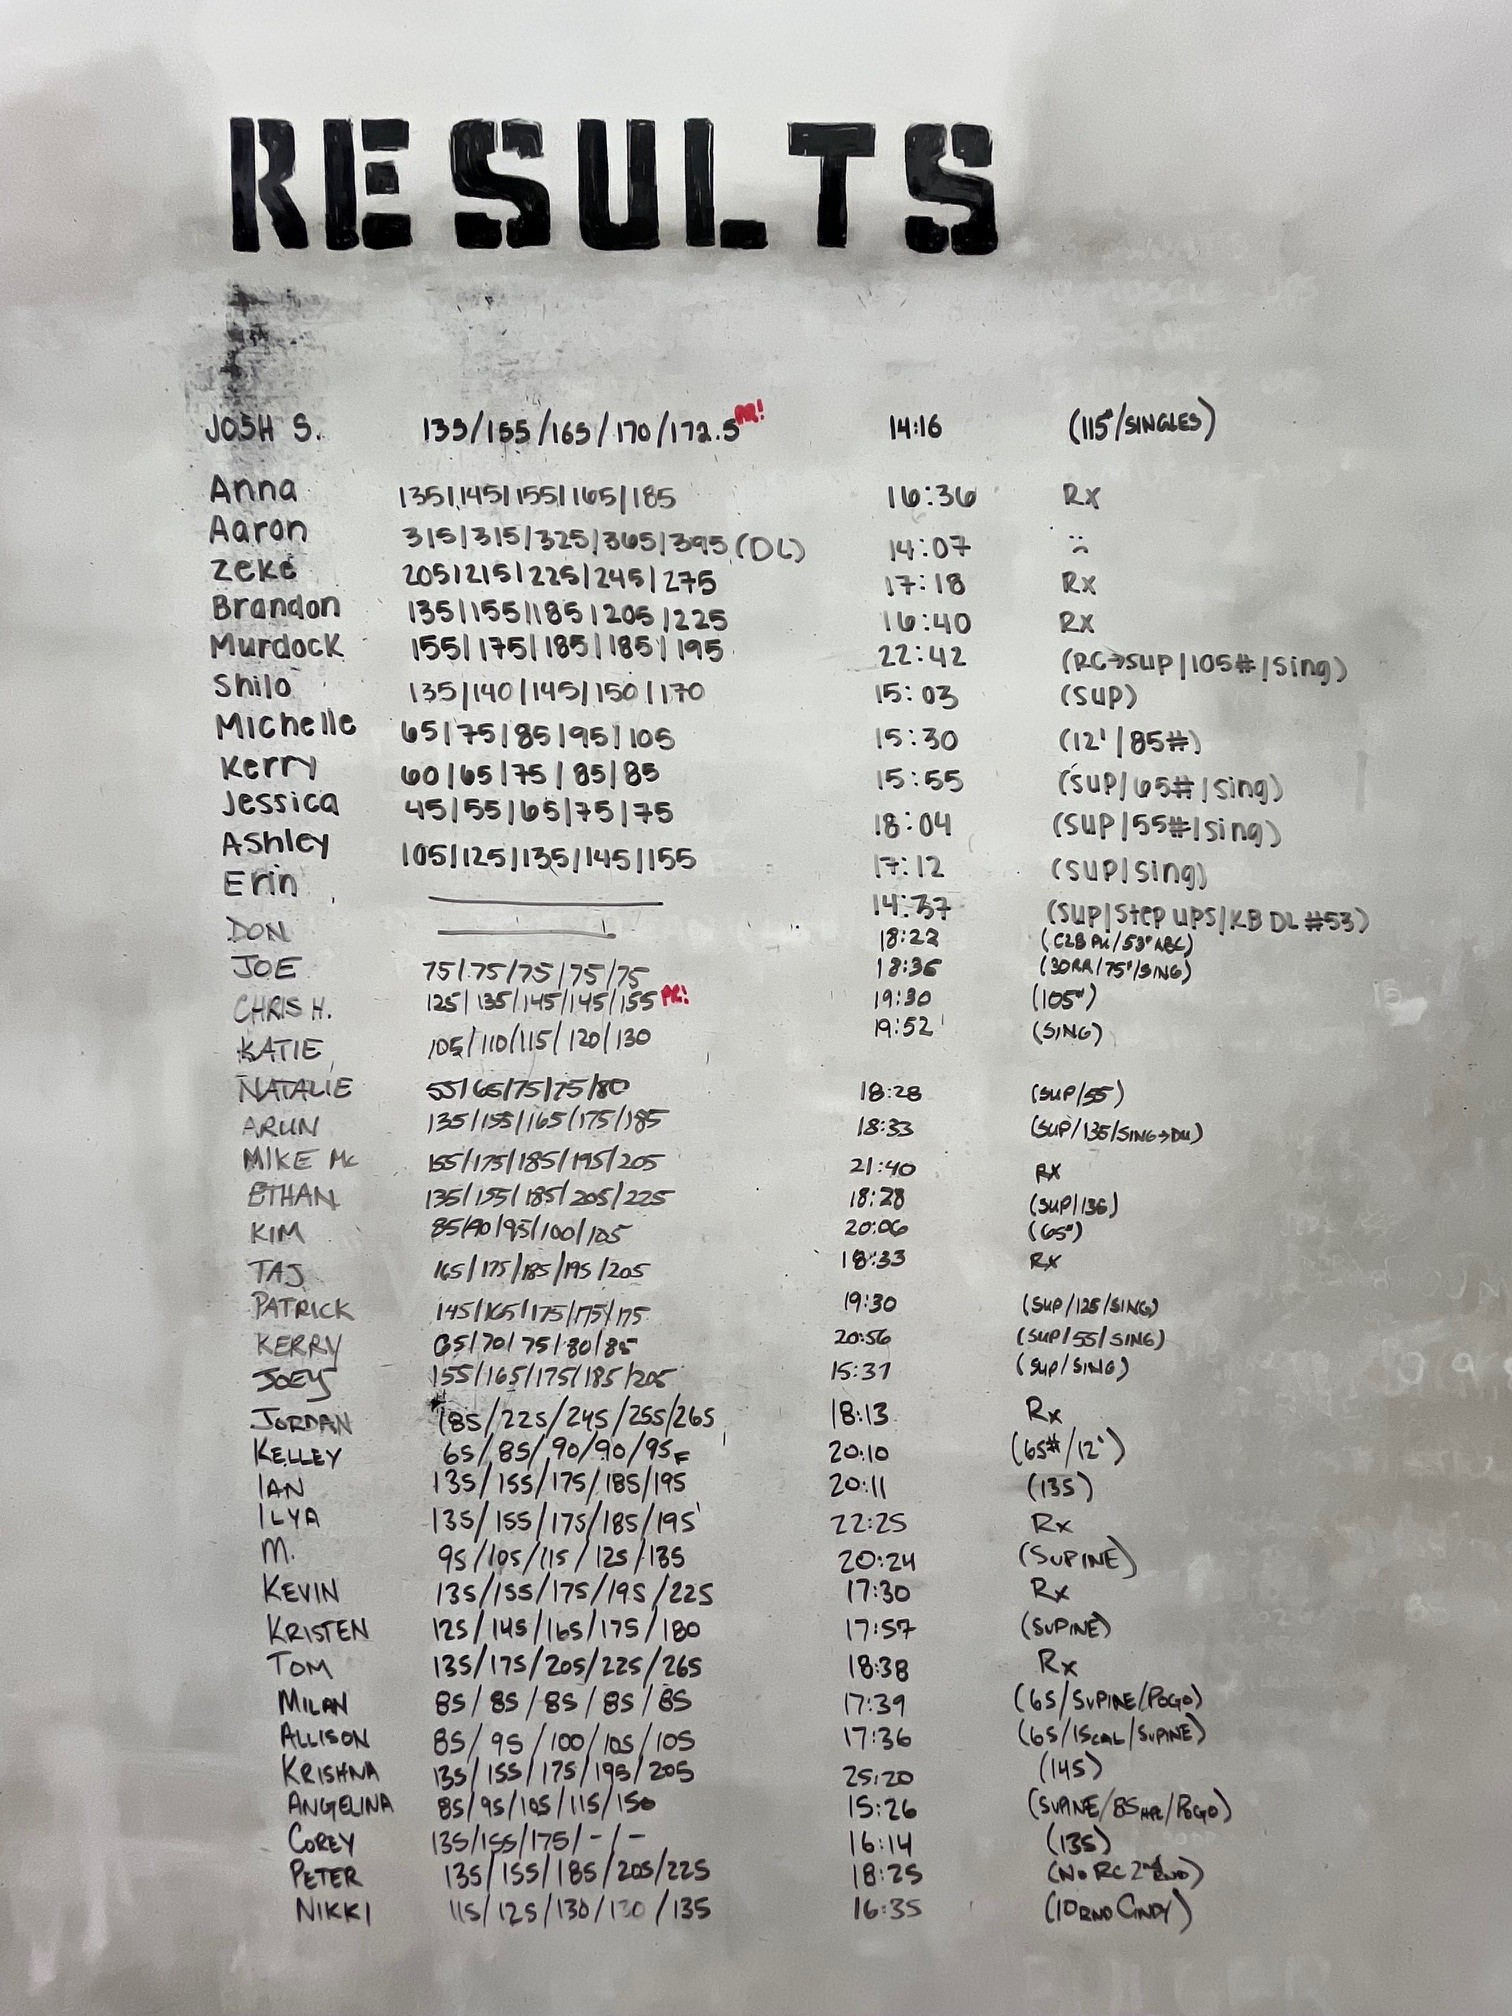 RESULTS
JOSH S. 135/155/165/170/172.5 PR! 14:16 (115#/SINGLES)
Anna 135/145/155/165/185 16:36 Rx
Aaron 315/315/325/365/395 (DL) 14:07 :(
Zeke 205/215/225/245/275 17:18 Rx
Brandon 135/155/185/205/225 16:40 Rx
Murdock 155/175/185/185/195 22:42 (RC→SUP/105#/Sing)
Shilo 135/140/145/150/170 15:03 (SUP)
Michelle 65/75/85/95/105 15:30 (12'/85#)
Kerry 60/65/75/85/85 15:55 (SUP/65#/Sing)
Jessica 45/55/65/75/75 18:04 (SUP/55#/Sing)
Ashley 105/125/135/145/155 17:12 (SUP/Sing)
Erin 14:37 (SUP/Step ups/KB DL #53)
DON 18:22 (C2B PU/53#
JOE 75/75/75/75/75 18:36 (30RR/75#/SING)
CHRIS H. 125/135/145/145/155 PR! 19:30 (105#)
KATIE 105/110/115/120/130 19:52 (SING)
NATALIE 55/65/75/75/80 18:28 (SUP/55)
ARUN 135/155/165/175/185 18:33 (SUP/135/SING→DU)
MIKE Mc 155/175/185/195/205 21:40 RX
ETHAN 135/155/185/205/225 18:28 (SUP/135)
KIM 85/90/95/100/105 20:06 (65#)
TAJ 165/175/185/195/205 18:33 Rx
PATRICK 145/165/175/175/175 19:30 (SUP/125/SING)
KERRY 65/70/75/80/85 20:56 (SUP/55/SING)
JOEY 155/165/175/185/205 15:37 (SUP/SING)
JORDAN 185/225/245/255/265 18:13 Rx
KELLEY 65/85/90/90/95F 20:10 (65#/12')
IAN 135/155/175/185/195 20:11 (135)
ILYA 135/155/175/185/195 22:25 Rx
M. 95/105/115/125/135 20:24 (SUPINE)
KEVIN 135/155/175/195/225 17:30 Rx
KRISTEN 125/145/165/175/180 17:57 (SUPINE)
TOM 135/175/205/225/265 18:38 Rx
MILAN 85/85/85/85/85 17:39 (65/SUPINE/POGO)
ALLISON 85/95/100/105/105 17:36 (65/15CAL/SUPINE)
KRISHNA 135/155/175/195/205 25:20 (145)
ANGELINA 85/95/105/115/150 15:26 (SUPINE/85 /POGO)
COREY 135/155/175/-/- 16:14 (135)
PETER 135/155/185/205/225 18:25 (NO RC 2nd RND)
NIKKI 115/125/130/130/135 16:35 (10 RND CINDY)